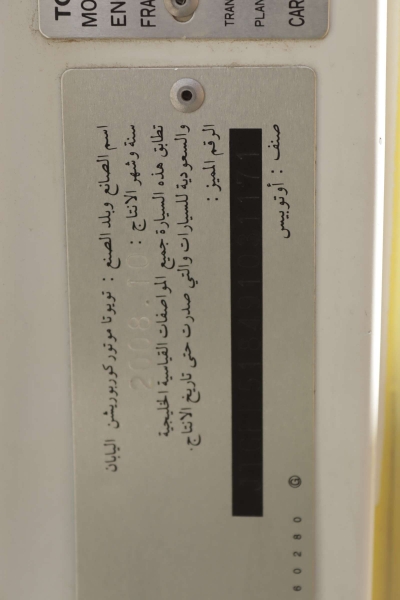 TO
MO
EN
FRA
TRAN
PLAN
CAR
اسم الصانع وبلد الصنع : تويوتا موتور كوربوريشن اليابان
سنة وشهر الانتاج : 2008.10
تطابق هذه السيارة جميع المواصفات القياسية الخليجية
والسعودية للسيارات والتي صدرت حتى تاريخ الانتاج.
الرقم المميز :
صنف : أوتوبيس
60280 G